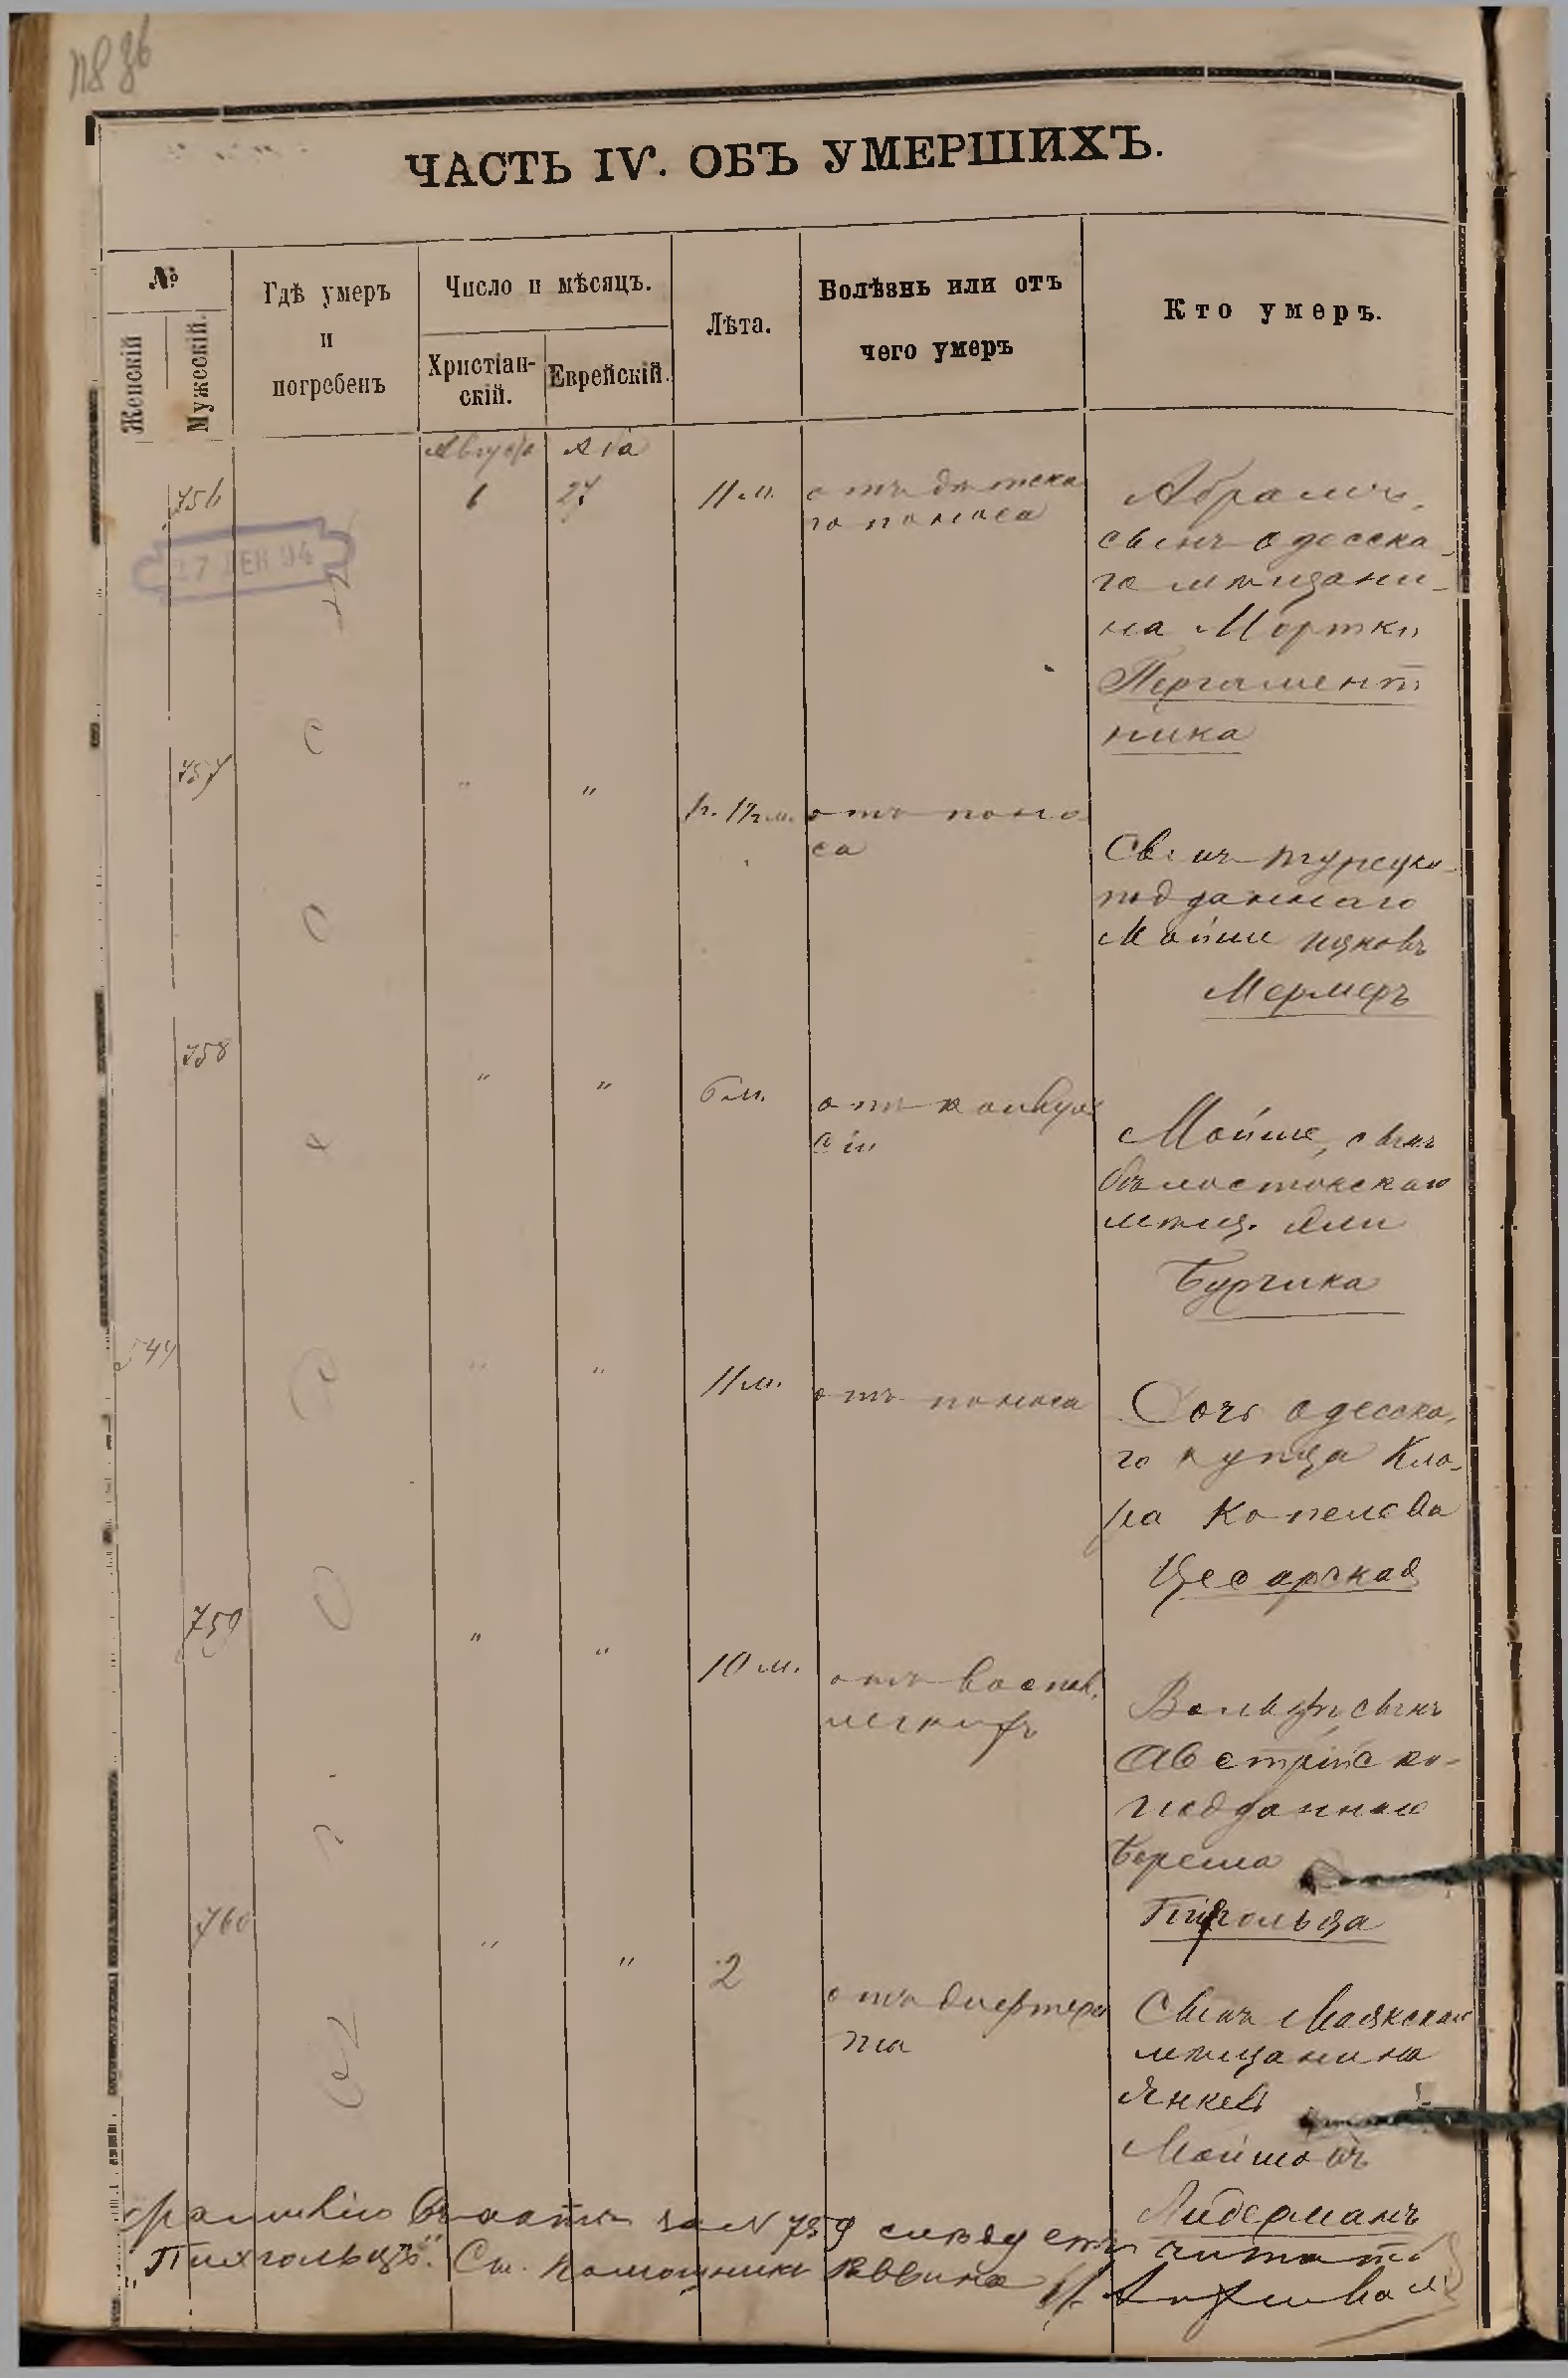 ЧАСТЬ IV. ОБЪ УМЕРШИХЪ.
№
Женскій
Мужескій.
Гдѣ умеръ
и
погребенъ
Число и мѣсяцъ.
Христіан-
скій.
Еврейскій.
Лѣта.
Болѣзнь или отъ
чего умеръ
Кто умеръ.
Августа
Ава
756
27 ДЕК 94
6
27
11 м.
отъ дѣтска
го поноса
Абрамъ,
сынъ одесска-
го мѣщани-
на Мортки
Пергамент
ника
757
"
"
отъ поно
са
Сынъ турецко-
подданнаго
Мойше Ицковъ
Мермеръ
758
"
"
6 м.
отъ конвуль
сіи
Мойше, сынъ
бѣлостокскаго
мѣщ. Эли
Бургика
544
"
"
11 м.
отъ поноса
Дочь одесска-
го купца Кла-
ра Копелева
Цесарская
759
"
"
10 м.
отъ воспал.
легкихъ
Вольфъ, сынъ
Австрійско-
подданнаго
Берема
Пихгольца
760
"
"
2
отъ дифтери
та
Сынъ Маякскаго
мѣщанина
Янкель
Мойшовъ
Лидерманъ
Фамилію въ актѣ за N 759 слѣдуетъ читать
"Пихгольцъ". Ст. помощникъ Раввина